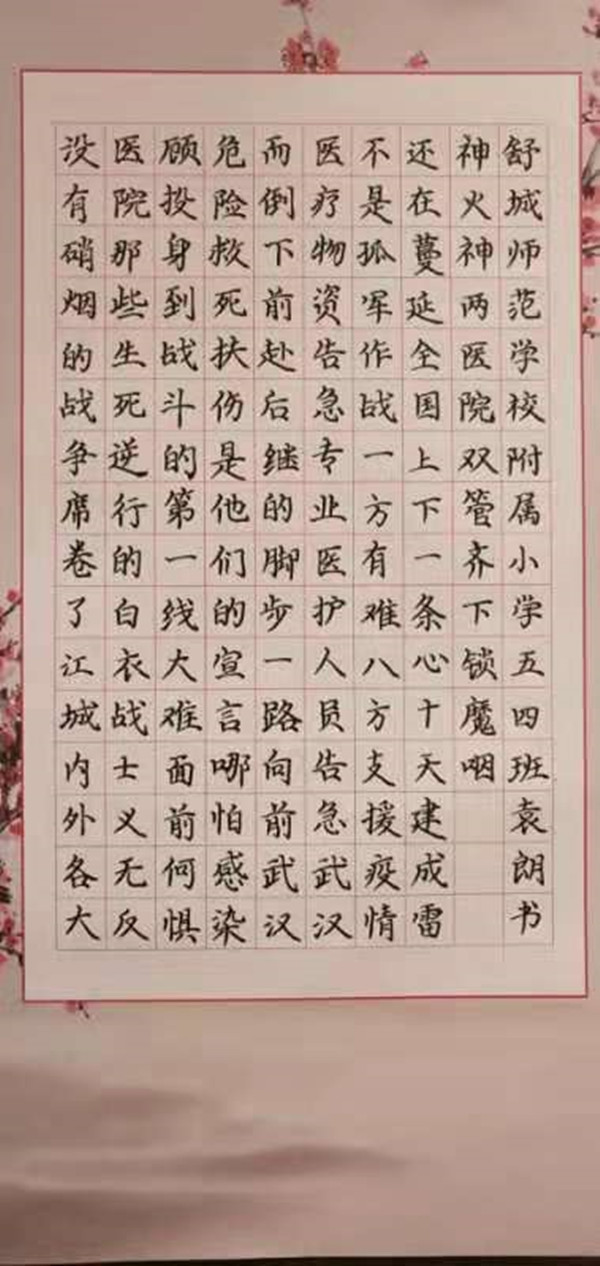 没有硝烟的战争席卷了江城内外各大
医院那些生死逆行的白衣战士义无反
顾投身到战斗的第一线大难面前何惧
危险救死扶伤是他们的宣言哪怕感染
而倒下前赴后继的脚步一路向前武汉
医疗物资告急专业医护人员告急武汉
不是孤军作战一方有难八方支援疫情
还在蔓延全国上下一条心十天建成雷
神火神两医院双管齐下锁魔咽
舒城师范学校附属小学五四班袁朗书